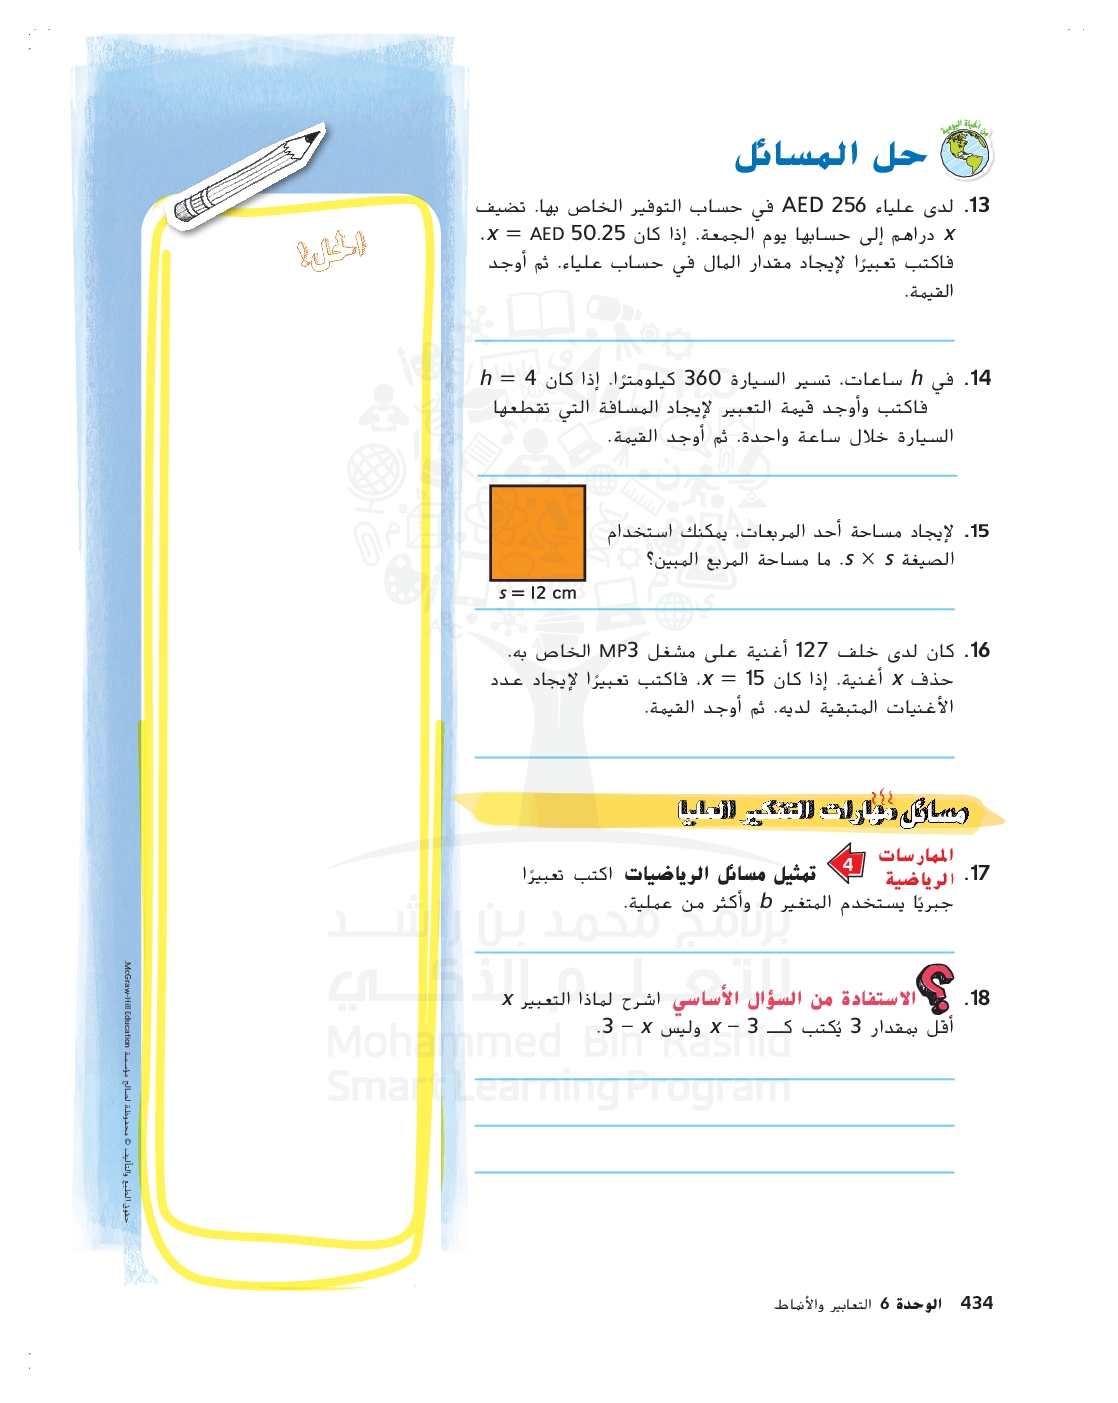 من الحياة اليومية
حل المسائل
13. لدى علياء AED 256 في حساب التوفير الخاص بها. تضيف
x دراهم إلى حسابها يوم الجمعة. إذا كان x = AED 50.25،
فاكتب تعبيرًا لإيجاد مقدار المال في حساب علياء. ثم أوجد
القيمة.
14. في h ساعات، تسير السيارة 360 كيلومترًا. إذا كان h = 4
فاكتب وأوجد قيمة التعبير لإيجاد المسافة التي تقطعها
السيارة خلال ساعة واحدة. ثم أوجد القيمة.
15. لإيجاد مساحة أحد المربعات، يمكنك استخدام
الصيغة s × s. ما مساحة المربع المبين؟
s = 12 cm
16. كان لدى خلف 127 أغنية على مشغل MP3 الخاص به.
حذف x أغنية. إذا كان x = 15، فاكتب تعبيرًا لإيجاد عدد
الأغنيات المتبقية لديه. ثم أوجد القيمة.
مسائل مهارات التفكير العليا
17. الممارسات الرياضية 4 تمثيل مسائل الرياضيات اكتب تعبيرًا
جبريًا يستخدم المتغير b وأكثر من عملية.
18. الاستفادة من السؤال الأساسي اشرح لماذا التعبير x
أقل بمقدار 3 يُكتب كـ x − 3 وليس 3 − x.
الحل!
برنامج محمد بن راشد
للتعلم الذكي
Mohammed Bin Rashid
Smart Learning Program
حقوق الطبع والتأليف © محفوظة لصالح مؤسسة McGraw-Hill Education.
434 الوحدة 6 التعابير والأنماط